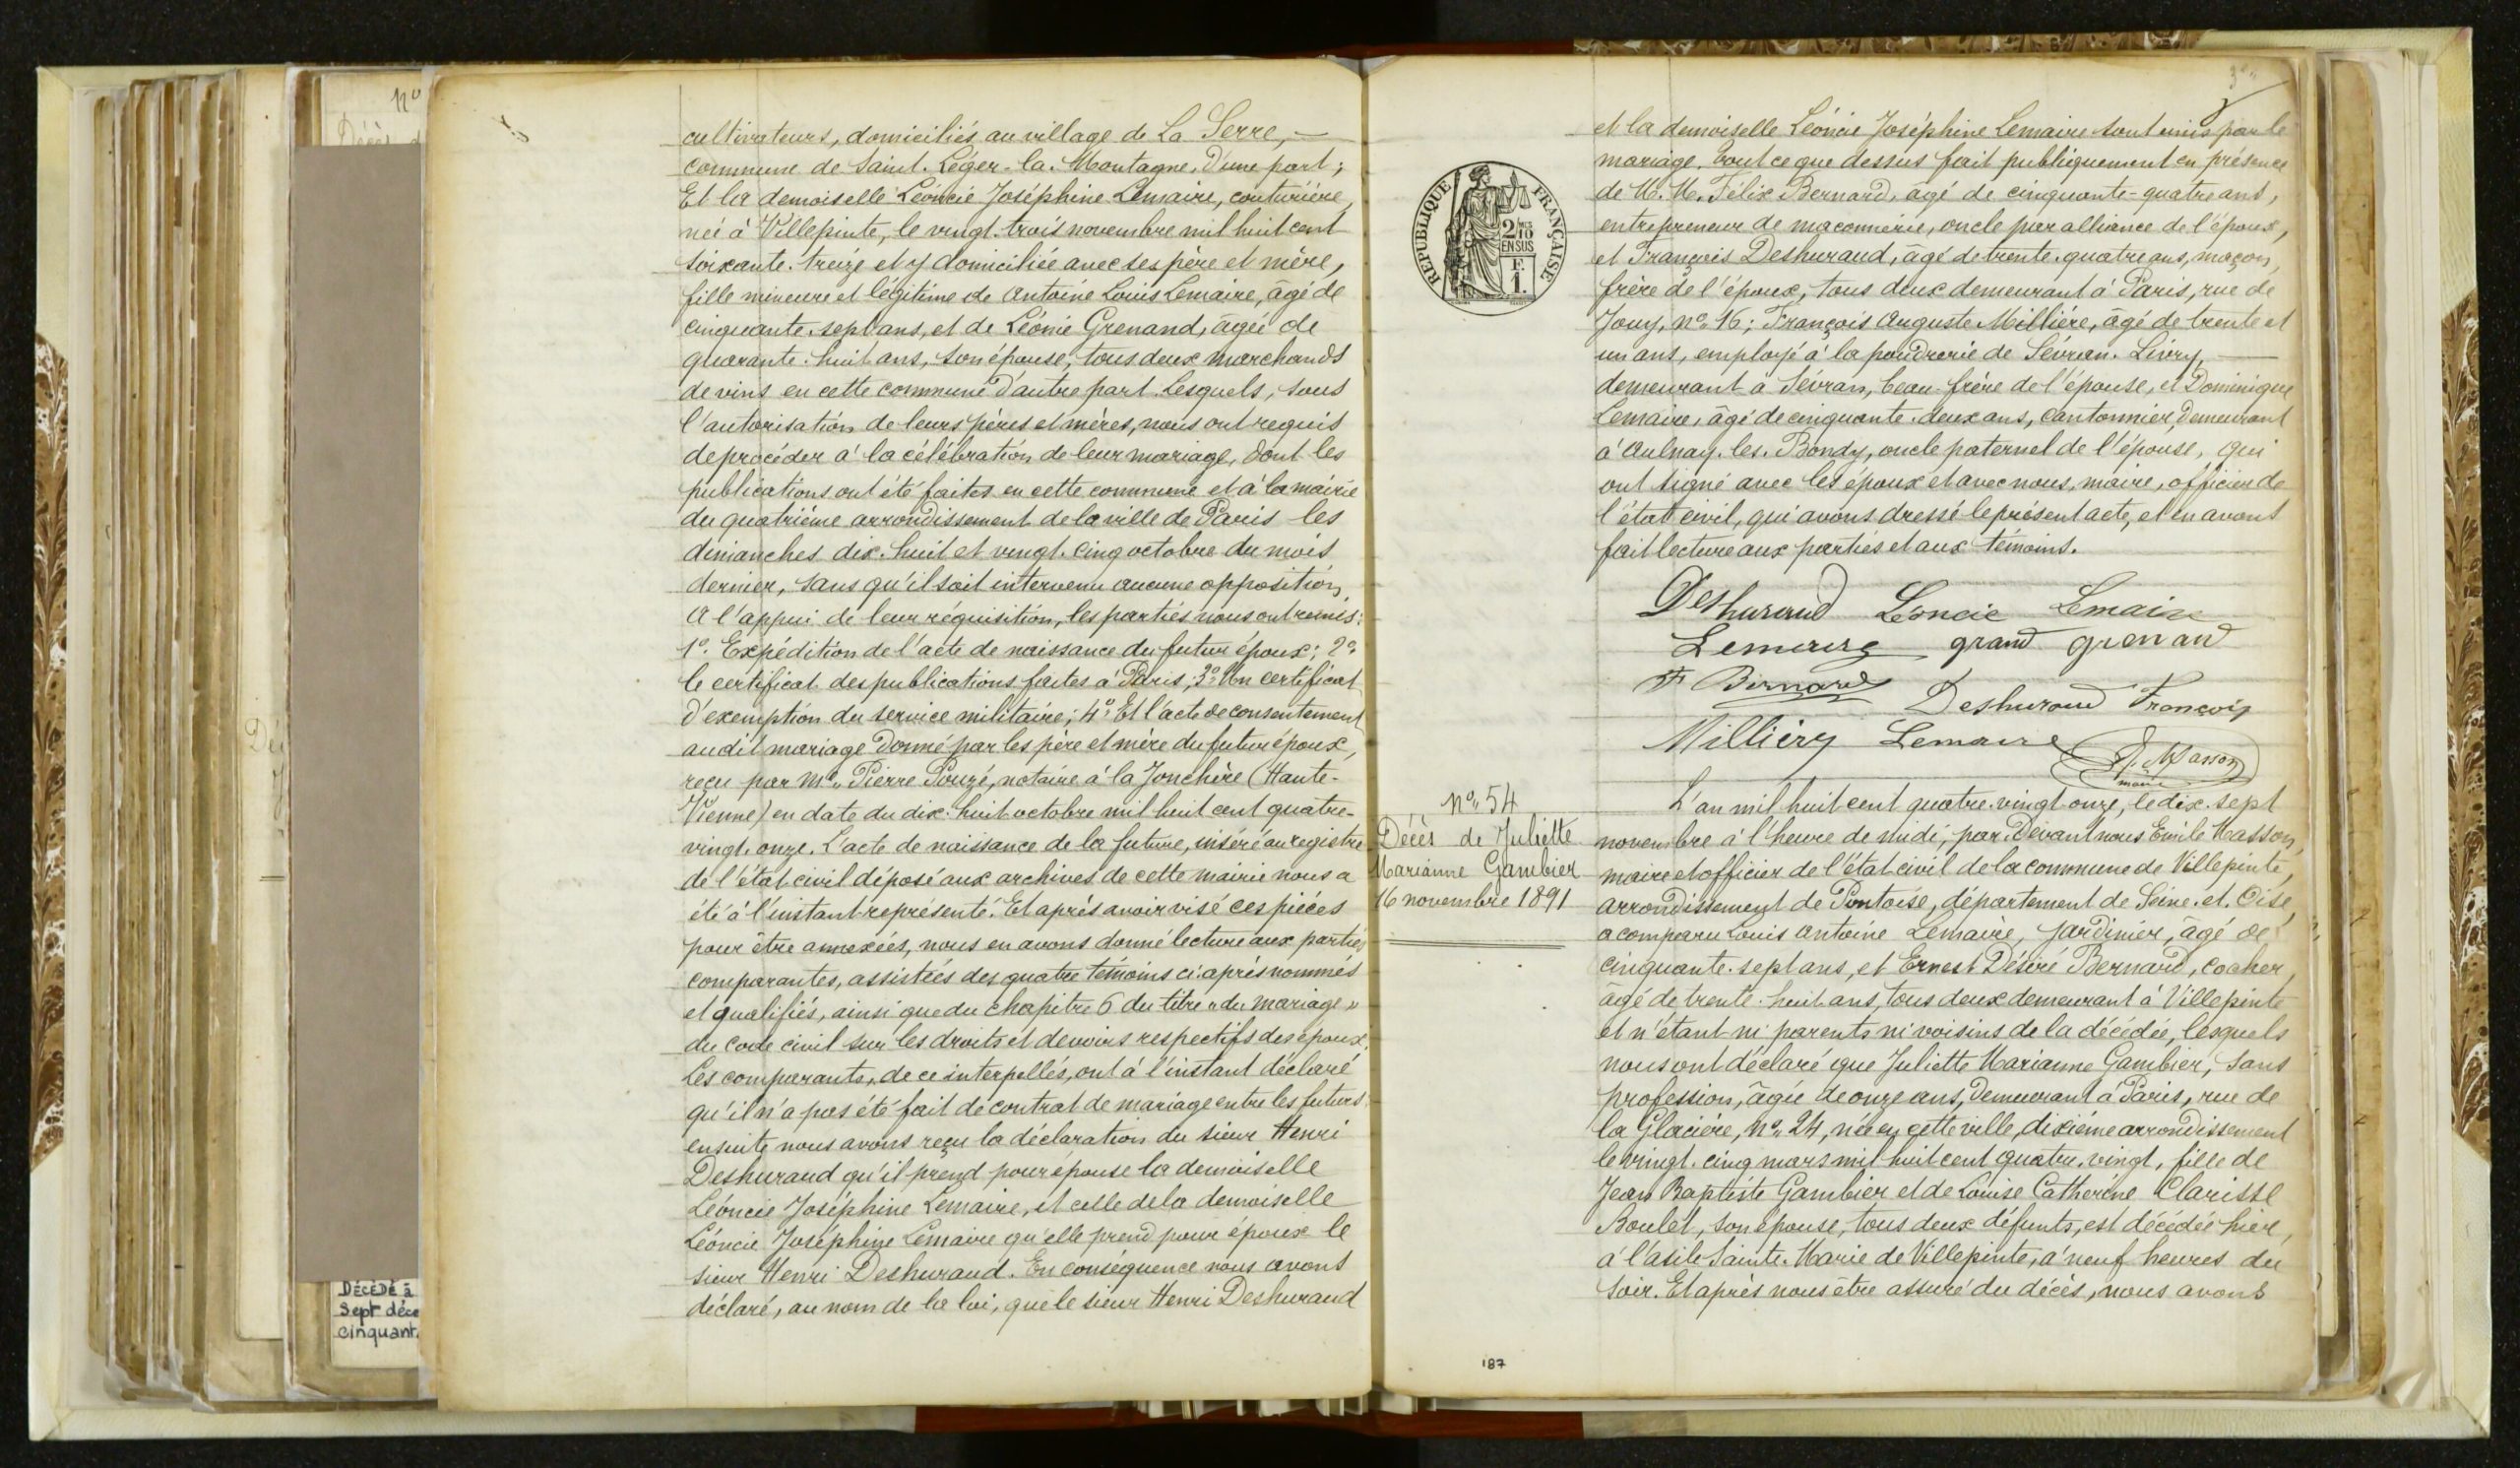 n°
Décès d
DÉCÉDÉ à
Sept déce
cinquant.
cultivateurs, domiciliés au village de La Serre, —
commune de Saint-Léger-la-Montagne, d'une part;
Et la demoiselle Léoncie Joséphine Lemaire, couturière,
née à Villepinte, le vingt-trois novembre mil huit cent
soixante-treize et y domiciliée avec ses père et mère,
fille mineure et légitime de Antoine Louis Lemaire, âgé de
cinquante-sept ans, et de Léonie Grenand, âgée de
quarante-huit ans, son épouse, tous deux marchands
de vins en cette commune d'autre part. Lesquels, sous
l'autorisation de leurs pères et mères, nous ont requis
de procéder à la célébration de leur mariage, dont les
publications ont été faites en cette commune et à la mairie
du quatrième arrondissement de la ville de Paris les
dimanches dix-huit et vingt-cinq octobre du mois
dernier, sans qu'il soit intervenu aucune opposition.
A l'appui de leur réquisition, les parties nous ont remis:
1° Expédition de l'acte de naissance du futur époux; 2°
le certificat des publications faites à Paris; 3° Un certificat
d'exemption du service militaire; 4° Et l'acte de consentement
audit mariage donné par les père et mère du futur époux,
reçu par Me Pierre Pouzé, notaire à la Jonchère (Haute-
Vienne) en date du dix-huit octobre mil huit cent quatre-
vingt-onze. L'acte de naissance de la future, inséré au registre
de l'état civil déposé aux archives de cette mairie nous a
été à l'instant représenté. Et après avoir visé ces pièces
pour être annexées, nous en avons donné lecture aux parties
comparantes, assistées des quatre témoins ci-après nommés
et qualifiés, ainsi que du chapitre 6 du titre "du mariage"
du code civil sur les droits et devoirs respectifs des époux.
Les comparants, de ce interpellés, ont à l'instant déclaré
qu'il n'a pas été fait de contrat de mariage entre les futurs.
ensuite nous avons reçu la déclaration du sieur Henri
Deshuraud qu'il prend pour épouse la demoiselle
Léoncie Joséphine Lemaire, et celle de la demoiselle
Léoncie Joséphine Lemaire qu'elle prend pour époux le
sieur Henri Deshuraud. En conséquence nous avons
déclaré, au nom de la loi, que le sieur Henri Deshuraud
RÉPUBLIQUE FRANÇAISE
2/10
EN SUS
F.
1.
et la demoiselle Léoncie Joséphine Lemaire sont unis par le
mariage. Tout ce que dessus fait publiquement en présence
de M.M. Félix Bernard, âgé de cinquante-quatre ans,
entrepreneur de maçonnerie, oncle par alliance de l'époux,
et François Deshuraud, âgé de trente-quatre ans, maçon,
frère de l'époux, tous deux demeurant à Paris, rue de
Jouy, n° 16; François Auguste Millière, âgé de trente et
un ans, employé à la poudrerie de Sévran-Livry, —
demeurant à Sévran, beau-frère de l'épouse, et Dominique
Lemaire, âgé de cinquante-deux ans, cantonnier, demeurant
à Aulnay-les-Bondy, oncle paternel de l'épouse, qui
ont signé avec les époux et avec nous, maire, officier de
l'état civil, qui avons dressé le présent acte, et en avons
fait lecture aux parties et aux témoins.
Deshuraud Léoncie Lemaire
Lemaire grand grenand
F Bernard Deshuraud François
Millièry Lemaire E. Masson
maire
N° 54
Décès de Juliette
Marianne Gambier
16 novembre 1891
L'an mil huit cent quatre-vingt-onze, le dix-sept
novembre à l'heure de midi, par-devant nous Emile Masson,
maire et officier de l'état civil de la commune de Villepinte,
arrondissement de Pontoise, département de Seine-et-Oise,
a comparu Louis Antoine Lemaire, jardinier, âgé de
cinquante-sept ans, et Ernest Désiré Bernard, cocher,
âgé de trente-huit ans, tous deux demeurant à Villepinte
et n'étant ni parents ni voisins de la décédée, lesquels
nous ont déclaré que Juliette Marianne Gambier, sans
profession, âgée de onze ans, demeurant à Paris, rue de
la Glacière, n° 24, née en cette ville, dixième arrondissement
le vingt-cinq mars mil huit cent quatre-vingt, fille de
Jean Baptiste Gambier et de Louise Catherine Clarisse
Boulet, son épouse, tous deux défunts, est décédée hier,
à l'asile Sainte-Marie de Villepinte, à neuf heures du
soir. Et après nous être assuré du décès, nous avons
187